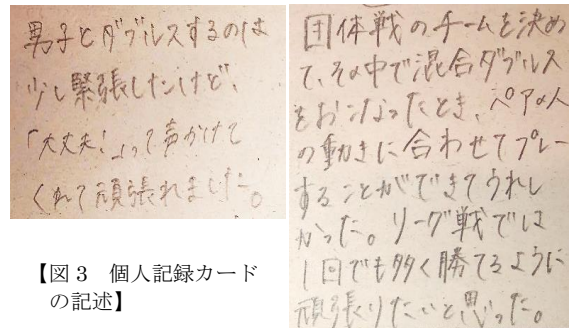 男子とダブルスするのは
少し緊張したけど、
「大丈夫！」って声かけて
くれて頑張れました。
【図3 個人記録カード
の記述】
団体戦のチームを決め
て、その中で混合ダブルス
をおこなったとき、ペアの人
の動きに合わせてプレー
することができてうれし
かった。リーグ戦では
1回でも多く勝てるように
頑張りたいと思った。